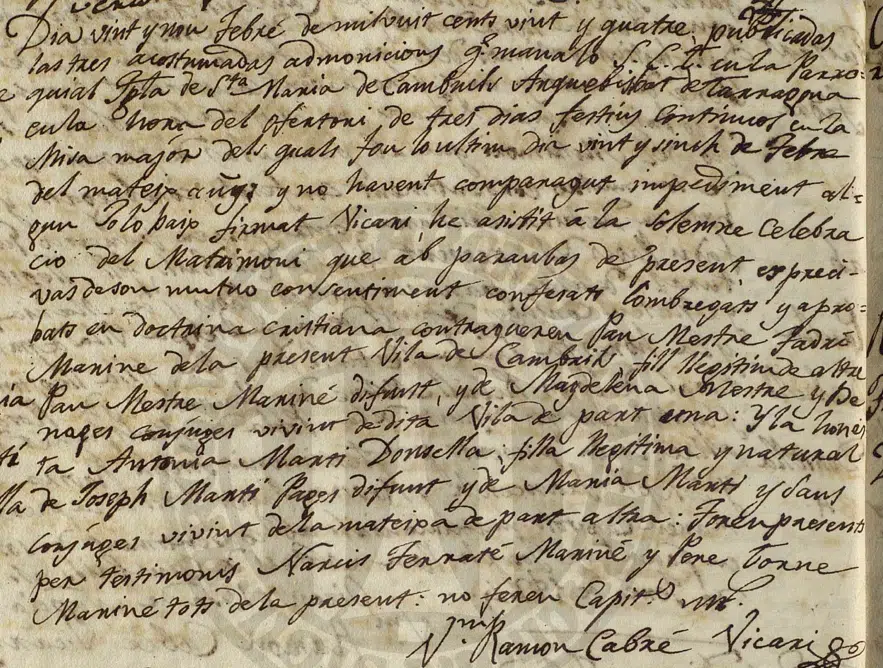 Dia vint y nou Febré de mil vuit cents vint y quatre, publicadas
las tres acostumadas admonicions q.e mana lo S. C. T. en la Parro-
quial Igla de S.ta Maria de Cambrils Arquebisbat de Tarragona
en la hora del ofertori de tres dias festius continuos en la
Misa major dels quals fou lo ultim dia vint y sinch de Febre
del mateix añy; y no havent comparagut impediment al=
gun Jo lo baix firmat Vicari, he asistit á la solemne Celebra
cio del Matrimoni que ab paraulas de present expreci-
vas de son mutuo consentiment confesats Combregats y apro-
bats en doctrina cristiana contragueren Pau Mestre Fadri
Mariné dela present Vila de Cambrils fill llegitim de altre
Pau Mestre Mariné difunt, y de Magdelena Mestre y Be
nages conjuges vivint de dita Vila de part una: Y la hones
ta Antonia Marti Donsella, filla llegitima y natural
de Joseph Marti Pages difunt y de Maria Marti y Saus
conjuges vivint de la mateixa de part altra: Foren presents
per testimonis Narcis Ferraté Mariné y Pere Torne
Mariné tots de la present: no feren Capit.s
Ramon Cabré Vicari